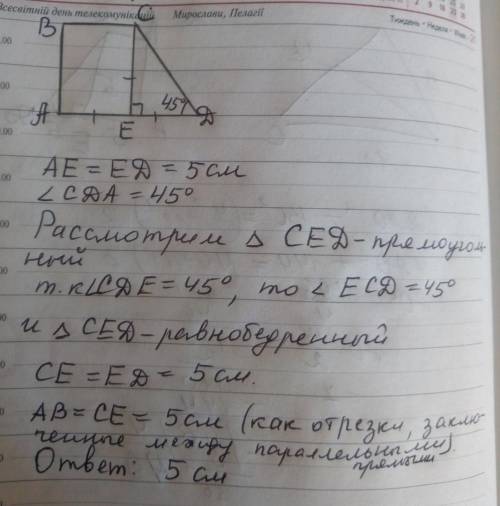 Всесвітній день телекомунікацій Мирослави, Пелагії
Тиждень • Неделя • Week
B C
45°
A E D
AE = ED = 5 см
∠CDA = 45°
Рассмотрим △ CED - прямоуголь-
ный
т.к ∠CDE = 45°, то ∠ ECD = 45°
и △ CED - равнобедренный
CE = ED = 5 см.
AB = CE = 5 см (как отрезки, заклю-
ченные между параллельными).
прямыми
Ответ: 5 см